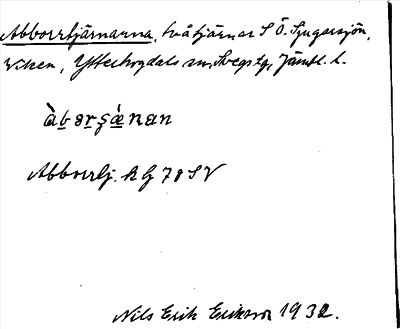 Abborrtjärnarna, två tjärnar S Ö. Ljugarsjön,
Viken, Ytterhogdals sn, Svegs tg, Jämtl. l.
àbərʂæ̀nan
Abborrtj. k G 78 S V
Nils Erik Eriksson 1932.